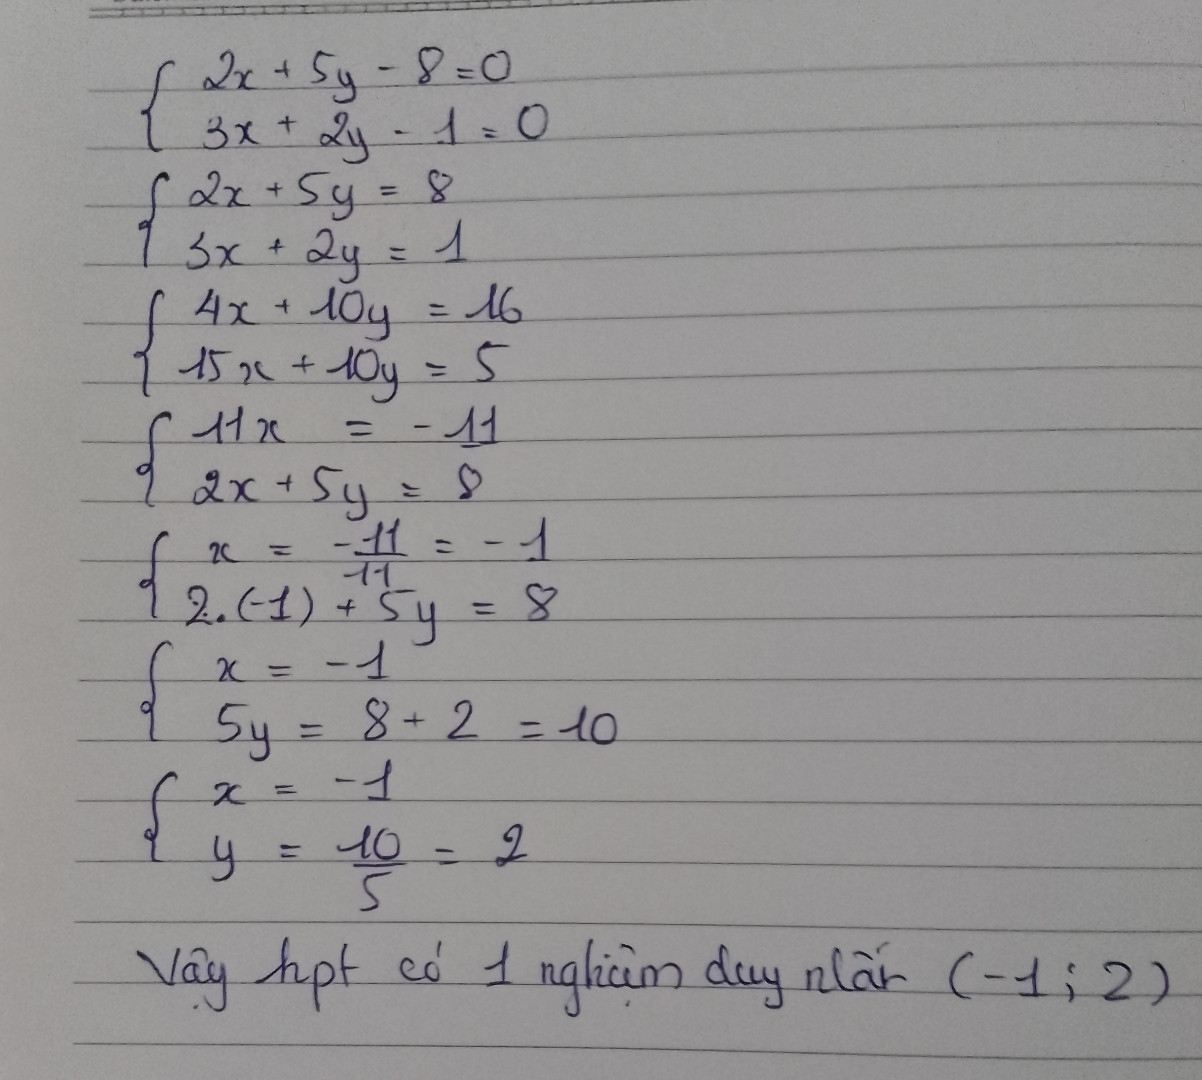 { 2x + 5y - 8 = 0
3x + 2y - 1 = 0
{ 2x + 5y = 8
3x + 2y = 1
{ 4x + 10y = 16
15x + 10y = 5
{ 11x = -11
2x + 5y = 8
{ x = -11/11 = -1
2.(-1) + 5y = 8
{ x = -1
5y = 8 + 2 = 10
{ x = -1
y = 10/5 = 2
Vậy hpt có 1 nghiệm duy nhất (-1; 2)